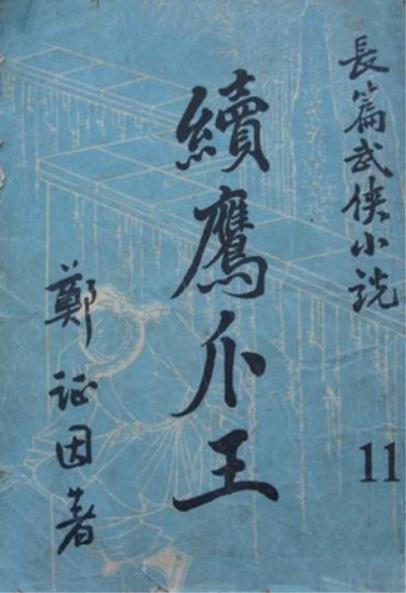 長篇武俠小説
續鷹爪王
鄭証因著
11